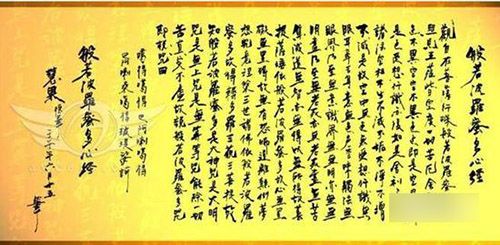 般若波羅蜜多心經
觀自在菩薩行深般若波羅蜜
多時照見五蘊皆空度一切苦厄舍利
子色不異空空不異色色即是空空即
是色受想行識亦復如是舍利子是
諸法空相不生不滅不垢不淨不增
不減是故空中無色無受想行識無
眼耳鼻舌身意無色聲香味觸法無
眼界乃至無意識界無無明亦無無
明盡乃至無老死亦無老死盡無苦
集滅道無智亦無得以無所得故菩
提薩埵依般若波羅蜜多故心無罣
礙無罣礙故無有恐怖遠離顛倒夢
想究竟涅槃三世諸佛依般若波羅
蜜多故得阿耨多羅三藐三菩提故
知般若波羅蜜多是大神咒是大明
咒是無上咒是無等等咒能除一切
苦真實不虛故說般若波羅蜜多咒
即說咒曰
揭諦揭諦波羅揭諦波
羅僧揭諦菩提薩婆訶
般若波羅蜜多心經
慧果
年六月十五